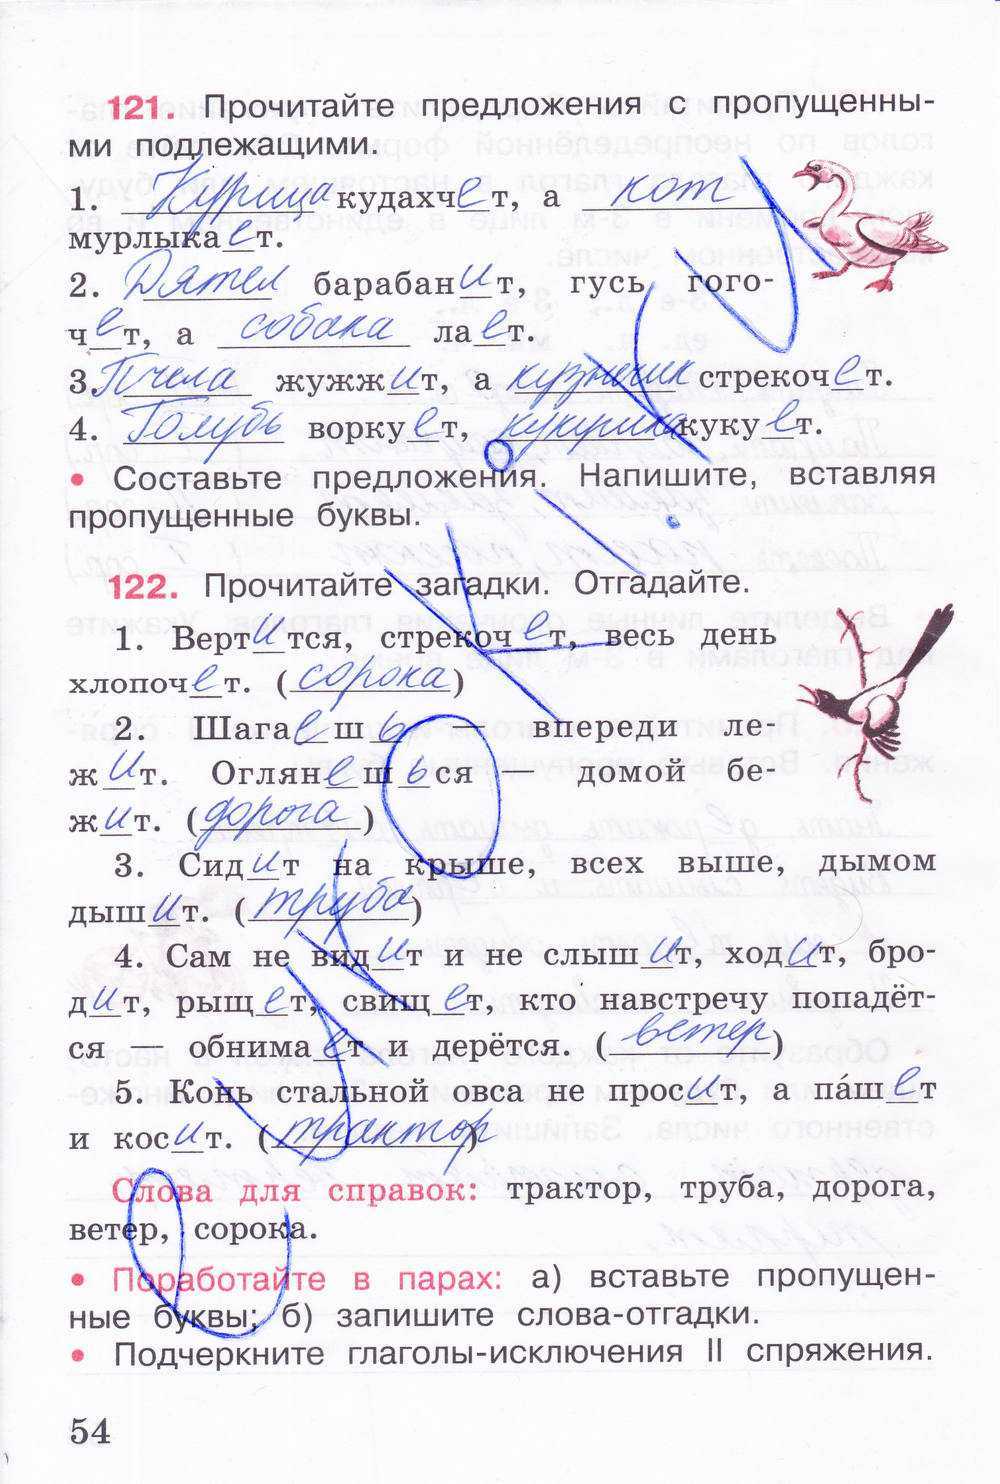 121. Прочитайте предложения с пропущенны-
ми подлежащими.
1. Курица кудахчет, а кот
мурлыкает.
2. Дятел барабанит, гусь гого-
чет, а собака лает.
3. Пчела жужжит, а кузнечик стрекочет.
4. Голубь воркует, кукушка кукует.
• Составьте предложения. Напишите, вставляя
пропущенные буквы.
122. Прочитайте загадки. Отгадайте.
1. Вертится, стрекочет, весь день
хлопочет. (сорока)
2. Шагаешь — впереди ле-
жит. Оглянешься — домой бе-
жит. (дорога)
3. Сидит на крыше, всех выше, дымом
дышит. (труба)
4. Сам не видит и не слышит, ходит, бро-
дит, рыщет, свищет, кто навстречу попадёт-
ся — обнимает и дерётся. (ветер)
5. Конь стальной овса не просит, а па́шет
и косит. (трактор)
Слова для справок: трактор, труба, дорога,
ветер, сорока.
• Поработайте в парах: а) вставьте пропущен-
ные буквы; б) запишите слова-отгадки.
• Подчеркните глаголы-исключения II спряжения.
54